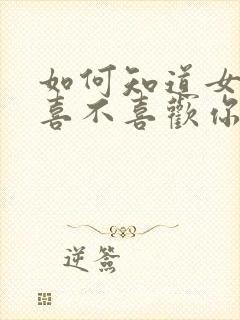 如何知道女
喜不喜歡你
逆簽